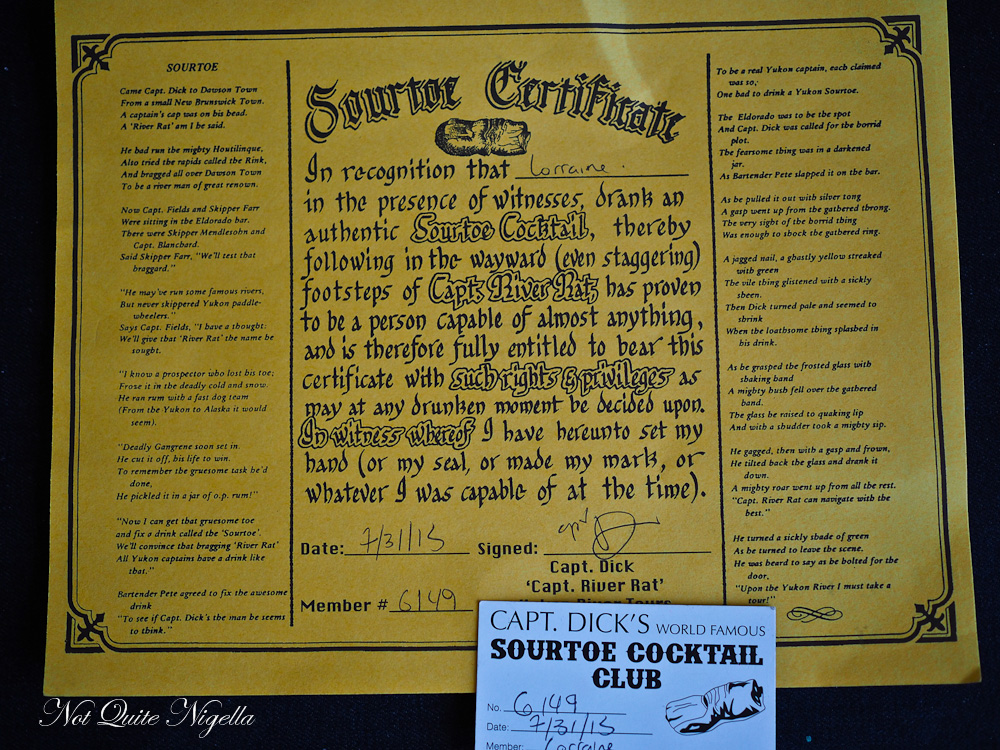 SOURTOE
Came Capt. Dick to Dawson Town
From a small New Brunswick Town.
A captain's cap was on his head.
A 'River Rat' am I he said.
He had run the mighty Houtilinque,
Also tried the rapids called the Rink,
And bragged all over Dawson Town
To be a river man of great renown.
Now Capt. Fields and Skipper Farr
Were sitting in the Eldorado bar.
There were Skipper Mendlesohn and
Capt. Blanchard.
Said Skipper Farr, "We'll test that
braggard."
"He may've run some famous rivers,
But never skippered Yukon paddle-
wheelers."
Says Capt. Fields, "I have a thought:
We'll give that 'River Rat' the name he
sought.
"I know a prospector who lost his toe;
Froze it in the deadly cold and snow.
He ran rum with a fast dog team
(From the Yukon to Alaska it would
seem).
"Deadly Gangrene soon set in.
He cut it off, his life to win.
To remember the gruesome task he'd
done,
He pickled it in a jar of o.p. rum!"
"Now I can get that gruesome toe
and fix a drink called the 'Sourtoe'.
We'll convince that bragging 'River Rat'
All Yukon captains have a drink like
that."
Bartender Pete agreed to fix the awesome
drink
"To see if Capt. Dick's the man he seems
to think."
Sourtoe Certificate
In recognition that Lorraine.
in the presence of witnesses, drank an
authentic Sourtoe Cocktail, thereby
following in the wayward (even staggering)
footsteps of Capt. River Rat, has proven
to be a person capable of almost anything,
and is therefore fully entitled to bear this
certificate with such rights & privileges as
may at any drunken moment be decided upon.
In witness whereof I have hereunto set my
hand (or my seal, or made my mark, or
whatever I was capable of at the time).
Date: 7/31/15 Signed:
Capt. Dick
'Capt. River Rat'
River Tours
Member # 6149
To be a real Yukon captain, each claimed
was so,
One had to drink a Yukon Sourtoe.
The Eldorado was to be the spot
And Capt. Dick was called for the horrid
plot.
The fearsome thing was in a darkened
jar.
As Bartender Pete slapped it on the bar.
As he pulled it out with silver tong
A gasp went up from the gathered throng.
The very sight of the horrid thing
Was enough to shock the gathered ring.
A jagged nail, a ghastly yellow streaked
with green
The vile thing glistened with a sickly
sheen.
Then Dick turned pale and seemed to
shrink
When the loathsome thing splashed in
his drink.
As he grasped the frosted glass with
shaking hand
A mighty hush fell over the gathered
band.
The glass he raised to quaking lip
And with a shudder took a mighty sip.
He gagged, then with a gasp and frown,
He tilted back the glass and drank it
down.
A mighty roar went up from all the rest.
"Capt. River Rat can navigate with the
best."
He turned a sickly shade of green
As he turned to leave the scene.
He was heard to say as he bolted for the
door,
"Upon the Yukon River I must take a
tour!"
CAPT. DICK'S WORLD FAMOUS
SOURTOE COCKTAIL
CLUB
No. 6149
Date: 7/31/15
Member: Lorraine
Not Quite Nigella